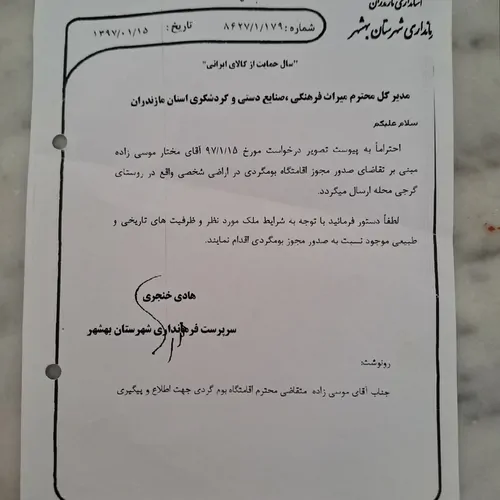 استانداری مازندران
شماره: ۸۴۲۷/۱/۱۷۹ تاریخ: ۱۳۹۷/۰۱/۱۵
شهرستان بهشهر
"سال حمایت از کالای ایرانی"
مدیر کل محترم میراث فرهنگی ،صنایع دستی و گردشگری استان مازندران
سلام علیکم
احتراماً به پیوست تصویر درخواست مورخ ۹۷/۱/۱۵ آقای مختار موسی زاده
مبنی بر تقاضای صدور مجوز اقامتگاه بومگردی در اراضی شخصی واقع در روستای
گرجی محله ارسال میگردد.
لطفاً دستور فرمائید با توجه به شرایط ملک مورد نظر و ظرفیت های تاریخی و
طبیعی موجود نسبت به صدور مجوز بومگردی اقدام نمایند.
هادی خنجری
سرپرست فرمانداری شهرستان بهشهر
رونوشت:
جناب آقای موسی زاده متقاضی محترم اقامتگاه بوم گردی جهت اطلاع و پیگیری